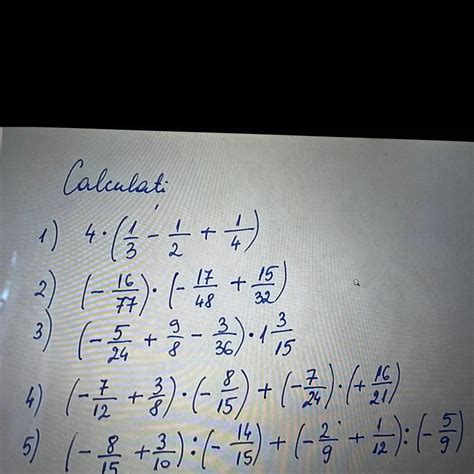 Calculati
1) 4·(1/3 - 1/2 + 1/4)
2) (-16/77)·(-17/48 + 15/32)
3) (-5/24 + 9/8 - 3/36)·1 3/15
4) (-7/12 + 3/8)·(-8/15) + (-7/24)·(+16/21)
5) (-8/15 + 3/10):(-14/15) + (-2/9 + 1/12):(-5/9)